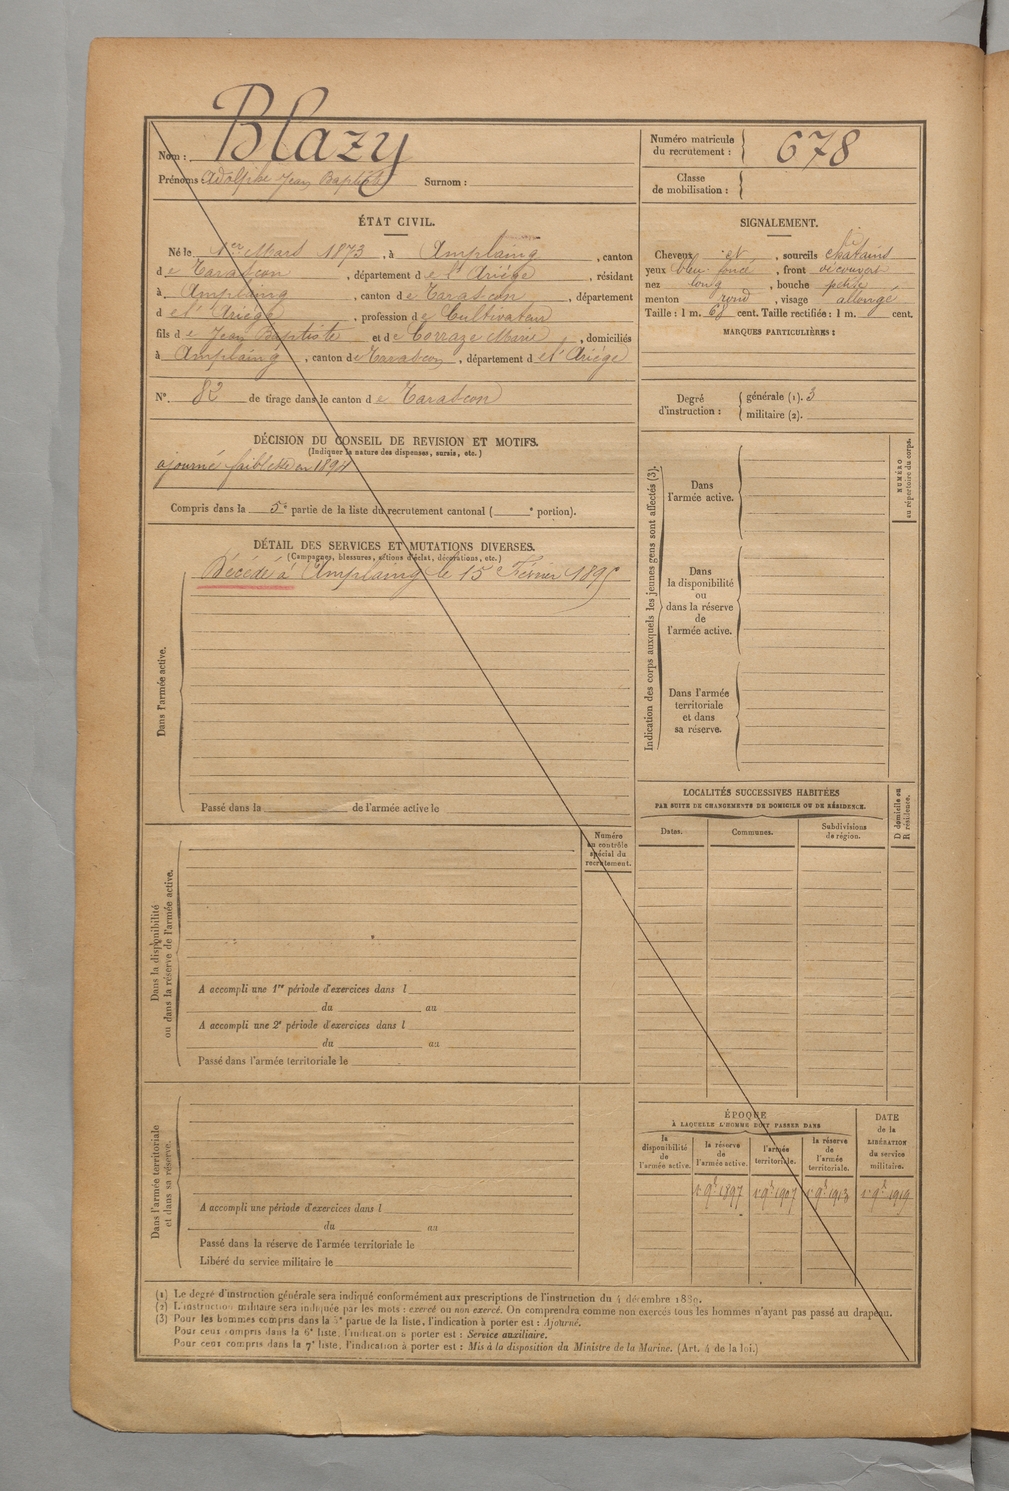 Blazy
Nom :
Prénoms Adolphe Jean Baptiste Surnom :
ÉTAT CIVIL.
Né le 1er Mars 1873, à Amplaing, canton
de Tarascon, département de l'Ariège, résidant
à Amplaing, canton de Tarascon, département
de l'Ariège, profession de Cultivateur
fils de Jean Baptiste et de Corraze Marie, domiciliés
à Amplaing, canton de Tarascon, département de l'Ariège
N° 82 de tirage dans le canton de Tarascon
DÉCISION DU CONSEIL DE REVISION ET MOTIFS.
(Indiquer la nature des dispenses, sursis, etc.)
ajourné faiblesse en 1894
Compris dans la 5e partie de la liste du recrutement cantonal ( e portion).
DÉTAIL DES SERVICES ET MUTATIONS DIVERSES.
(Campagnes, blessures, actions d'éclat, décorations, etc.)
Décédé à Amplaing le 15 Février 1895
Dans l'armée active.
Passé dans la de l'armée active le
Numéro
au contrôle
spécial du
recrutement.
Dans la disponibilité
ou dans la réserve de l'armée active.
A accompli une 1re période d'exercices dans l
du au
A accompli une 2e période d'exercices dans l
du au
Passé dans l'armée territoriale le
Dans l'armée territoriale
et dans sa réserve.
A accompli une période d'exercices dans l
du au
Passé dans la réserve de l'armée territoriale le
Libéré du service militaire le
Numéro matricule
du recrutement :
678
Classe
de mobilisation :
SIGNALEMENT.
Cheveux et, sourcils chatains
yeux bleu foncé, front découvert
nez long, bouche petite
menton rond, visage allongé
Taille : 1 m. 68 cent. Taille rectifiée : 1 m. cent.
MARQUES PARTICULIÈRES :
Degré
d'instruction :
générale (1). 3
militaire (2).
Indication des corps auxquels les jeunes gens sont affectés (3).
Dans
l'armée active.
Dans
la disponibilité
ou
dans la réserve
de
l'armée active.
Dans l'armée
territoriale
et dans
sa réserve.
NUMÉRO
au répertoire du corps.
LOCALITÉS SUCCESSIVES HABITÉES
PAR SUITE DE CHANGEMENTS DE DOMICILE OU DE RÉSIDENCE.
Dates. Communes. Subdivisions
de région.
D domicile ou
R résidence.
ÉPOQUE
À LAQUELLE L'HOMME DOIT PASSER DANS
la
disponibilité
de
l'armée active.
la réserve
de
l'armée active.
l'armée
territoriale.
la réserve
de
l'armée
territoriale.
DATE
de la
LIBÉRATION
du service
militaire.
1er 9bre 1897 1er 9bre 1907 1er 9bre 1913 1er 9bre 1919
(1) Le degré d'instruction générale sera indiqué conformément aux prescriptions de l'instruction du 4 décembre 1889.
(2) L'instruction militaire sera indiquée par les mots : exercé ou non exercé. On comprendra comme non exercés tous les hommes n'ayant pas passé au drapeau.
(3) Pour les hommes compris dans la 5e partie de la liste, l'indication à porter est : Ajourné.
Pour ceux compris dans la 6e liste, l'indication à porter est : Service auxiliaire.
Pour ceux compris dans la 7e liste, l'indication à porter est : Mis à la disposition du Ministre de la Marine. (Art. 4 de la loi.)